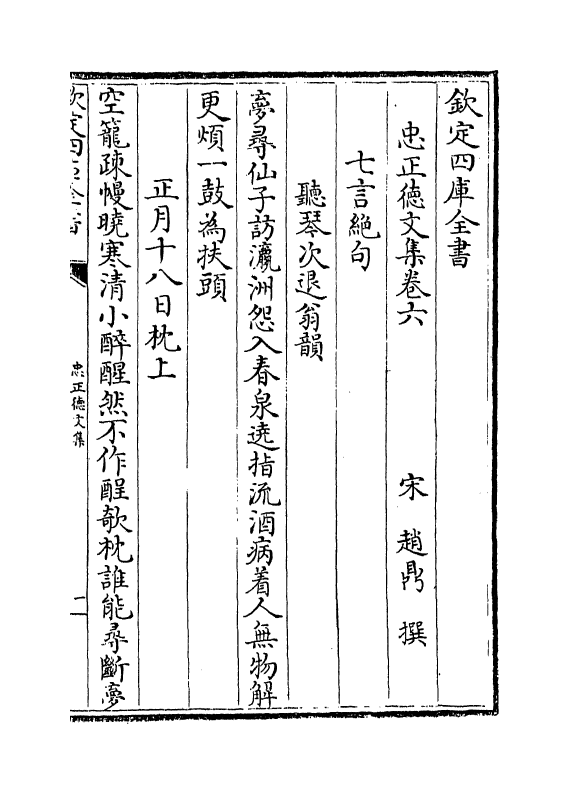 欽定四庫全書
忠正徳文集卷六　宋　趙鼎　撰
七言絶句
聽琴次退翁韻
夢尋仙子訪瀛洲怨入春泉遶指流酒病着人無物解
更煩一鼓為扶頭
正月十八日枕上
空籠疎幔曉寒清小醉醒然不作酲欹枕誰能尋斷夢
欽定四庫全書
忠正徳文集